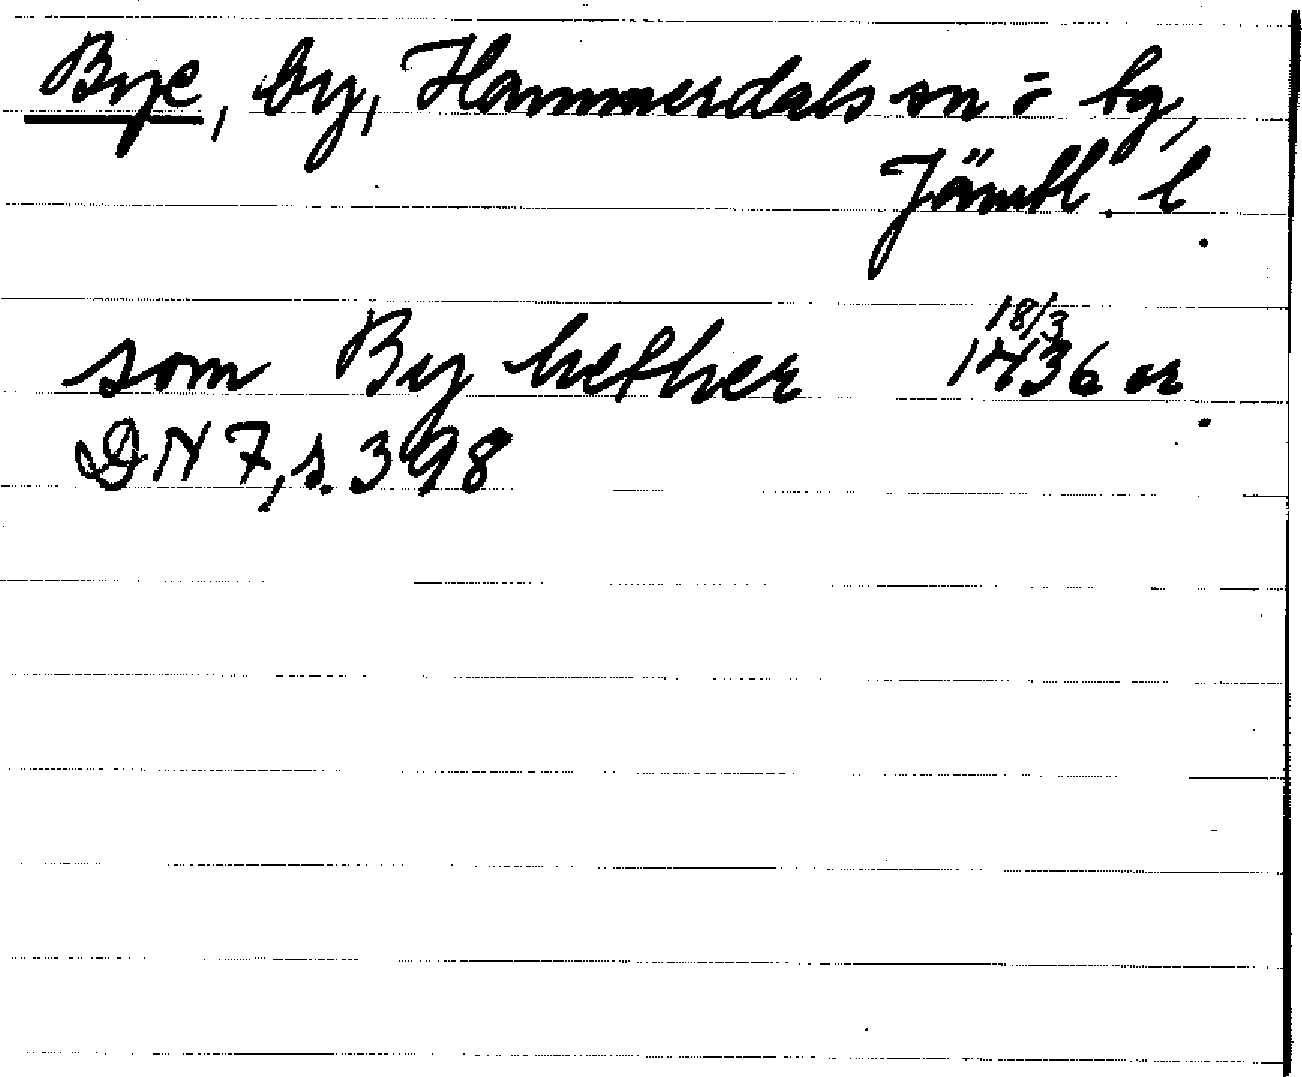 Bye, by, Hammerdals sn o bg,
Jämtl. l.
som By hether 18/3 1436 or.
DN 7, s. 398